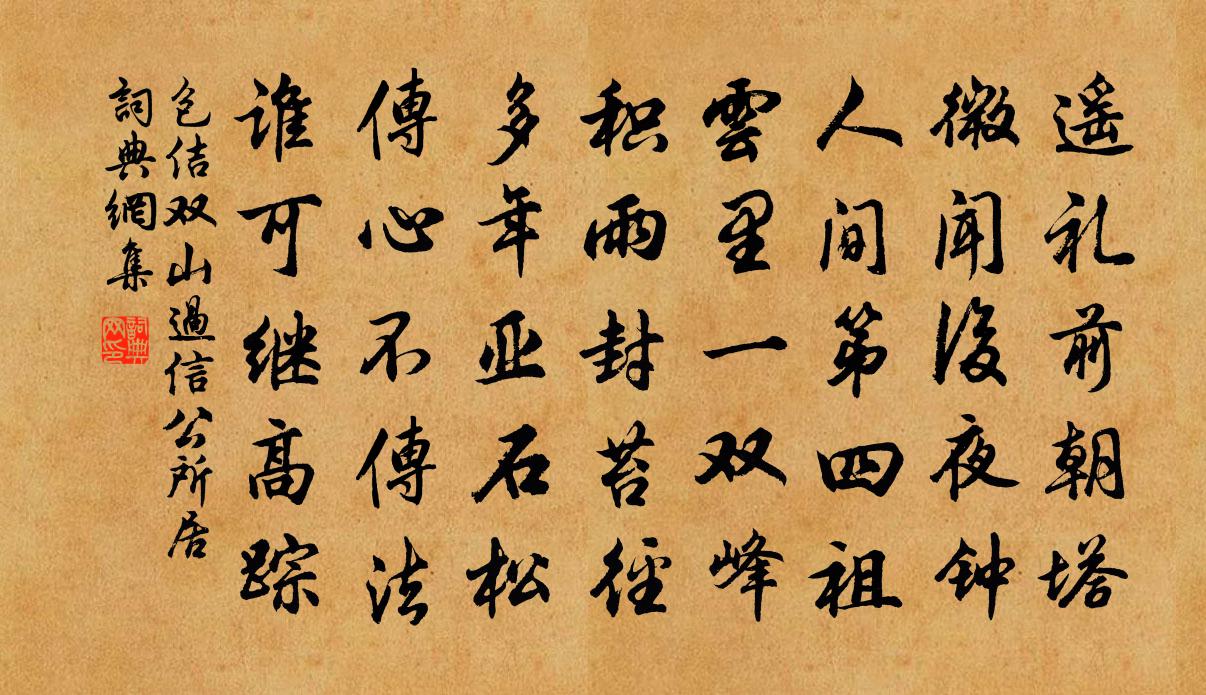 遥礼前朝塔
微闻後夜钟
人间第四祖
雲里一双峰
积雨封苔径
多年亚石松
傳心不傳法
谁可继高踪
包佶双山過信公所居
詞典網集
詞典
网印